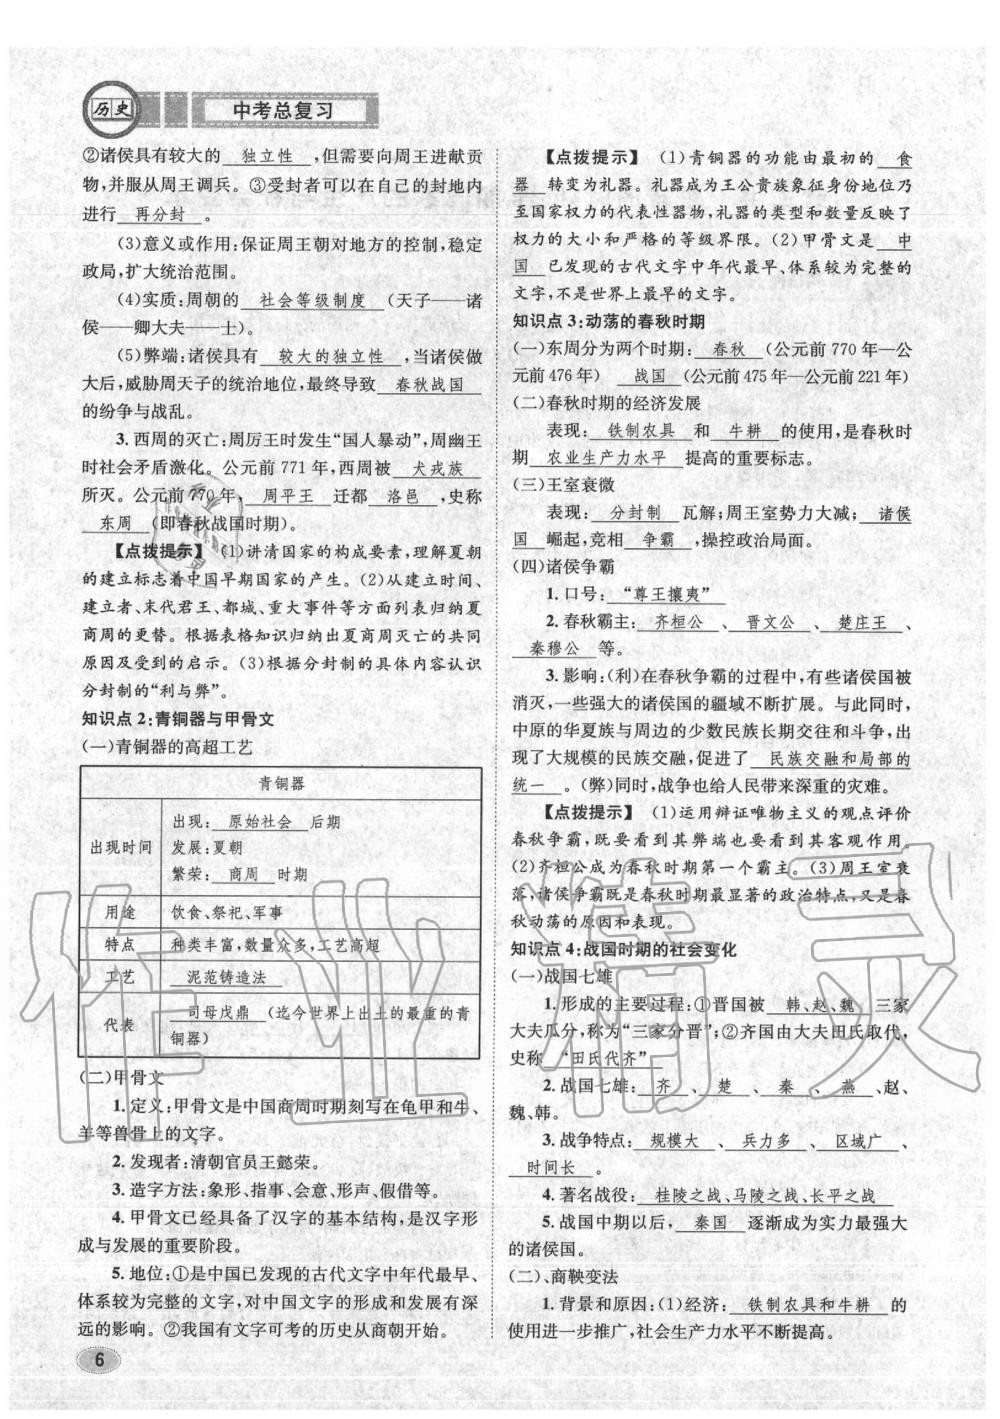 历史 中考总复习
②诸侯具有较大的 独立性 ,但需要向周王进献贡
物,并服从周王调兵。③受封者可以在自己的封地内
进行 再分封 。
(3)意义或作用:保证周王朝对地方的控制,稳定
政局,扩大统治范围。
(4)实质:周朝的 社会等级制度 (天子——诸
侯——卿大夫——士)。
(5)弊端:诸侯具有 较大的独立性 ,当诸侯做
大后,威胁周天子的统治地位,最终导致 春秋战国
的纷争与战乱。
3. 西周的灭亡:周厉王时发生“国人暴动”,周幽王
时社会矛盾激化。公元前 771 年,西周被 犬戎族
所灭。公元前 770 年, 周平王 迁都 洛邑 ,史称
东周 (即春秋战国时期)。
【点拨提示】 (1)讲清国家的构成要素,理解夏朝
的建立标志着中国早期国家的产生。(2)从建立时间、
建立者、末代君王、都城、重大事件等方面列表归纳夏
商周的更替。根据表格知识归纳出夏商周灭亡的共同
原因及受到的启示。(3)根据分封制的具体内容认识
分封制的“利与弊”。
知识点 2:青铜器与甲骨文
(一)青铜器的高超工艺
青铜器
出现时间
出现: 原始社会 后期
发展:夏朝
繁荣: 商周 时期
用途 饮食、祭祀、军事
特点 种类丰富,数量众多,工艺高超
工艺 泥范铸造法
代表
司母戊鼎 (迄今世界上出土的最重的青
铜器)
(二)甲骨文
1. 定义:甲骨文是中国商周时期刻写在龟甲和牛、
羊等兽骨上的文字。
2. 发现者:清朝官员王懿荣。
3. 造字方法:象形、指事、会意、形声、假借等。
4. 甲骨文已经具备了汉字的基本结构,是汉字形
成与发展的重要阶段。
5. 地位:①是中国已发现的古代文字中年代最早、
体系较为完整的文字,对中国文字的形成和发展有深
远的影响。②我国有文字可考的历史从商朝开始。
6
【点拨提示】 (1)青铜器的功能由最初的 食
器 转变为礼器。礼器成为王公贵族象征身份地位乃
至国家权力的代表性器物,礼器的类型和数量反映了
权力的大小和严格的等级界限。(2)甲骨文是 中
国 已发现的古代文字中年代最早、体系较为完整的
文字,不是世界上最早的文字。
知识点 3:动荡的春秋时期
(一)东周分为两个时期: 春秋 (公元前 770 年—公
元前 476 年) 战国 (公元前 475 年—公元前 221 年)
(二)春秋时期的经济发展
表现: 铁制农具 和 牛耕 的使用,是春秋时
期 农业生产力水平 提高的重要标志。
(三)王室衰微
表现: 分封制 瓦解;周王室势力大减; 诸侯
国 崛起,竞相 争霸 ,操控政治局面。
(四)诸侯争霸
1. 口号: “尊王攘夷”
2. 春秋霸主: 齐桓公 、 晋文公 、 楚庄王 、
秦穆公 等。
3. 影响:(利)在春秋争霸的过程中,有些诸侯国被
消灭,一些强大的诸侯国的疆域不断扩展。与此同时,
中原的华夏族与周边的少数民族长期交往和斗争,出
现了大规模的民族交融,促进了 民族交融和局部的
统一 。(弊)同时,战争也给人民带来深重的灾难。
【点拨提示】 (1)运用辩证唯物主义的观点评价
春秋争霸,既要看到其弊端也要看到其客观作用。
(2)齐桓公成为春秋时期第一个霸主。(3)周王室衰
落,诸侯争霸既是春秋时期最显著的政治特点,又是春
秋动荡的原因和表现。
知识点 4:战国时期的社会变化
(一)战国七雄
1. 形成的主要过程:①晋国被 韩、赵、魏 三家
大夫瓜分,称为“三家分晋”;②齐国由大夫田氏取代,
史称 “田氏代齐”
2. 战国七雄: 齐 、 楚 、 秦 、 燕 、赵、
魏、韩。
3. 战争特点: 规模大 、 兵力多 、 区域广 、
时间长 。
4. 著名战役: 桂陵之战、马陵之战、长平之战
5. 战国中期以后, 秦国 逐渐成为实力最强大
的诸侯国。
(二)、商鞅变法
1. 背景和原因:(1)经济: 铁制农具和牛耕 的
使用进一步推广,社会生产力水平不断提高。
作业精灵